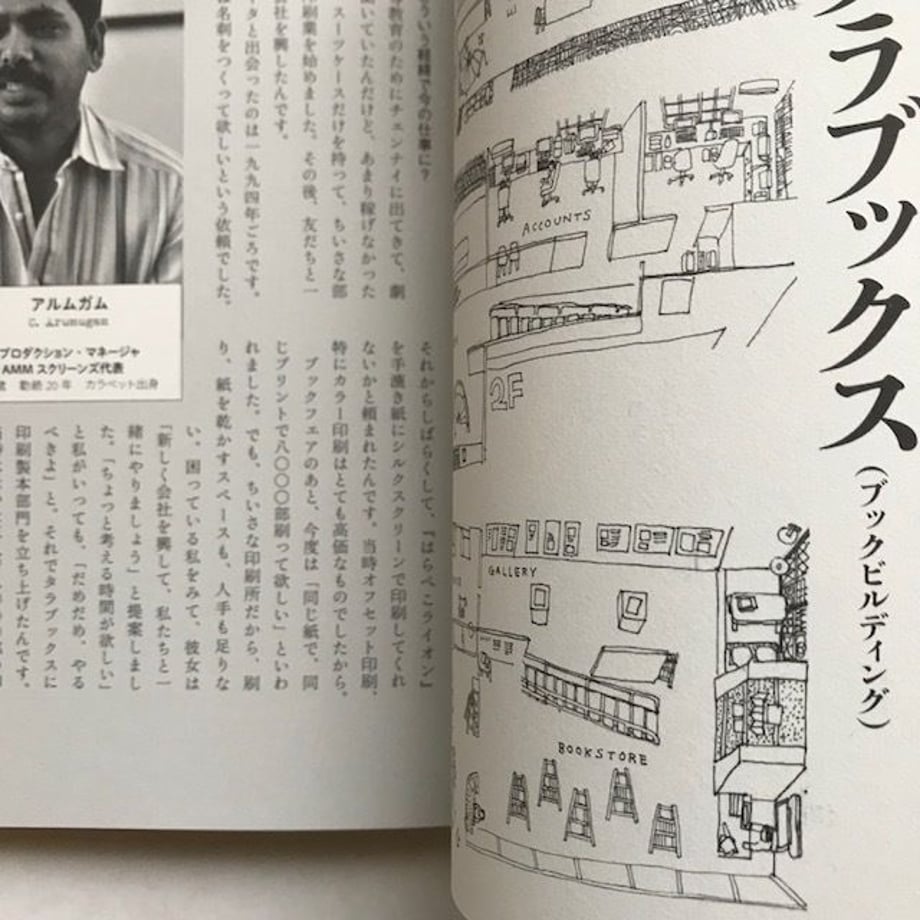 ういう経緯で今の仕事に?
教育のためにチェンナイに出てきて、劇
いていたんだけど、あまり稼げなかった
スーツケースだけを持って、ちいさな部
刷業を始めました。その後、友だちと一
会社を興したんです。
タと出会ったのは一九九四年ごろです。
名刺をつくって欲しいという依頼でした。
アルムガム
C. Arumugam
プロダクション・マネージャ
AMM スクリーンズ代表
勤続 20 年 カラペット出身
それからしばらくして、『はらぺこライオン』
を手漉き紙にシルクスクリーンで印刷してくれ
ないかと頼まれたんです。当時オフセット印刷、
特にカラー印刷はとても高価なものでしたから。
ブックフェアのあと、今度は「同じ紙で、同
じプリントで八〇〇〇部刷って欲しい」といわ
れました。でも、ちいさな印刷所だから、刷
り、紙を乾かすスペースも、人手も足りな
い。困っている私をみて、彼女は
「新しく会社を興して、私たちと一
緒にやりましょう」と提案しまし
た。「ちょっと考える時間が欲しい」
と私がいっても、「だめだめ、やる
べきよ」と。それでタラブックスに
印刷製本部門を立ち上げたんです。
ラブックス
(ブックビルディング)
ACCOUNTS
2F
GALLERY
BOOKSTORE